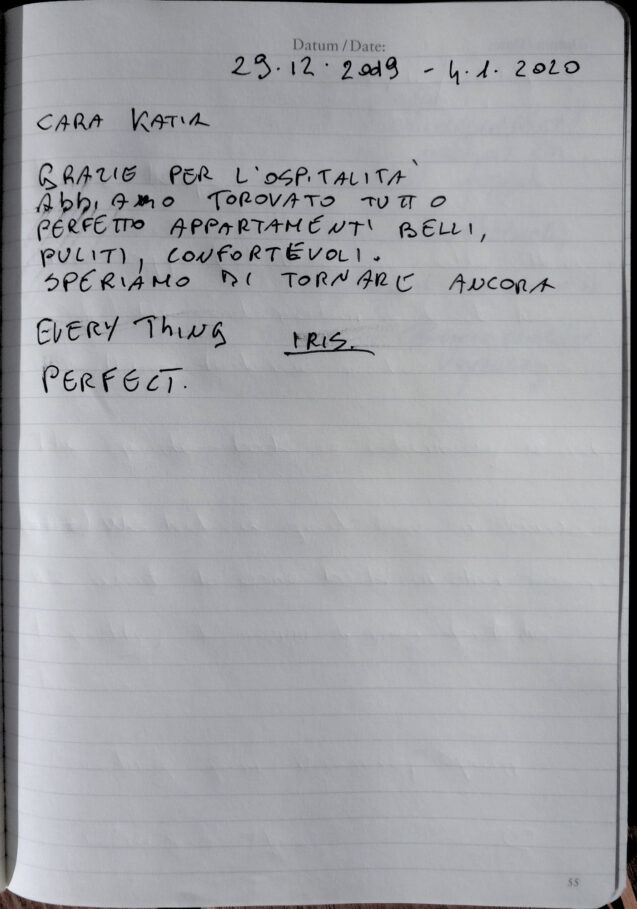 Datum / Date:
29.12.2009 - 4.1.2020
CARA KATIA
GRAZIE PER L'OSPITALITÀ
AbbiAMO TOROVATO TUTTO
PERFETTO APPARTAMENTI BELLI,
PULITI, CONFORTEVOLI.
SPERIAMO DI TORNARE ANCORA
EVERY ThiNG IRIS.
PERFECT.
55